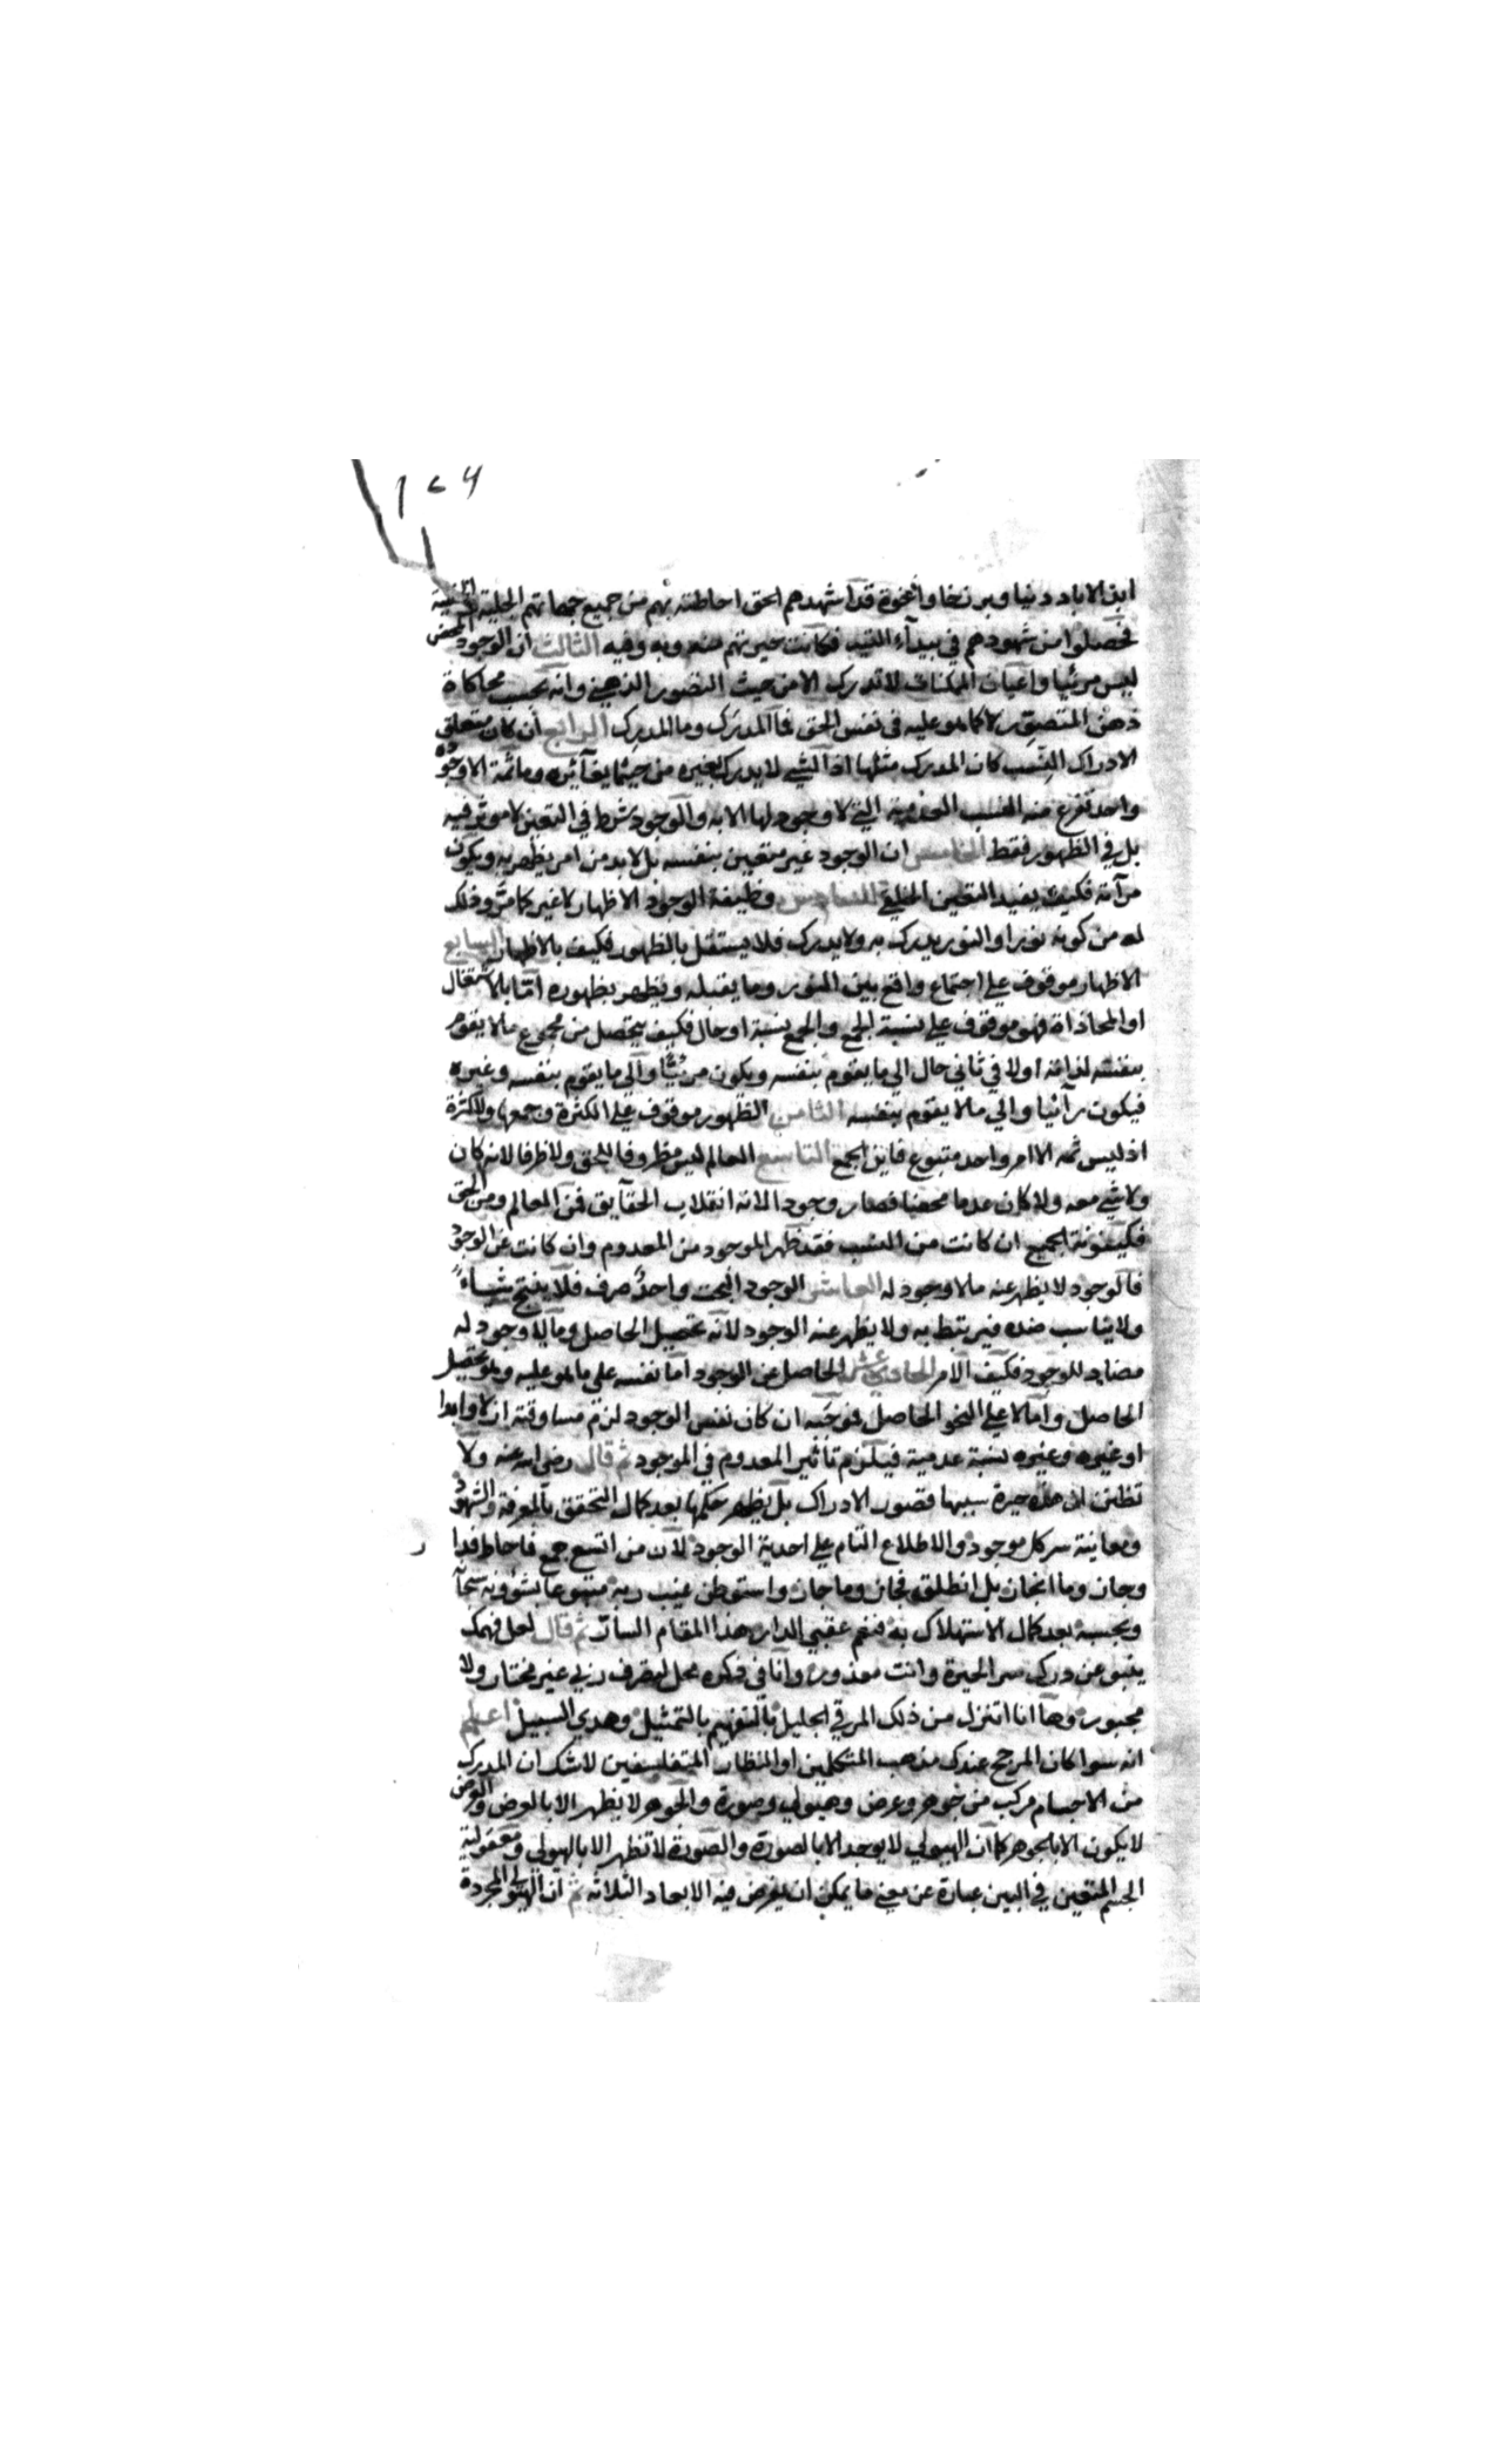 ١٢٦
ابد الاباد دنيا وبرزخا وآخرة قد اشهدهم الحق احاطته بهم من جميع جهاتهم الجلية الخفية
فحصلوا من شهودهم في بيدآء التيه فكانت حيرتهم منه وبه وفيه الثالث ان الوجود المحض
ليس مرئيا واعيان الممكنات لا تدرك الا من حيث التصور الذهني وانه بحسب محاكاة
ذهن المتصور لا كما هو عليه في نفس الحق فما المدرَك وما المدرِك الرابع ان كان متعلق
الادراك النِسب كان المدرك مثلها اذ الشيء لا يدرك بغيره من حيثما يغآئره وما ثمة الا وجود
واحد تفرع منه النسب العدمية التي لا وجود لها الا به والوجود شرط في التعين لا موثر فيه
بل في الظهور فقط الخامس ان الوجود غير متعين بنفسه بل لا بد من امر يظهر به ويكون
مرآته فكيف يفيد التعين الخلقي السادس وظيفة الوجود الاظهار لا غير كما مرَّ وذلك
له من كونه نورا والنور يدرك به ولا يدرك فلا يستقل بالظهور فكيف بالاظهار السابع
الاظهار موقوف علي اجتماع واقع بين النور وما يقبله ويظهر بظهوره امّا بالاشتغال
او المحاذاة فهو موقوف علي نسبة الجمع والجمع نسبة او حال فكيف يتحصل من مجموع ما لا يقوم
بنفسه لذاته اولا في ثاني حال الي ما يقوم بنفسه ويكون مرئيًّا والي ما يقوم بنفسه وغيره
فيكون رآئيا والي ما لا يقوم بنفسه الثامن الظهور موقوف علي الكثرة وجمعها ولا كثرة
اذ ليس ثمه الا امر واحد متبوع فاين الجمع التاسع العالم ليس مظروفا للحق ولا ظرفا لانه كان
ولا شيء معه ولا كان عدما محضا فصار وجودا لانه انقلاب الحقآيق فمن العالم ومن الحق
فكينونة الجميع ان كانت من النسب فقد ظهر الموجود من المعدوم وان كانت عن الوجود
فالوجود لا يظهر عنه ما لا وجود له العاشر الوجود البحت واحدٌ صرف فلا ينتج شياءً
ولا يناسب ضده فيرتبط به ولا يظهر عنه الوجود لانه تحصيل الحاصل وما لا وجود له
مضاد للوجود فكيف الامر الحادي عشر الحاصل عن الوجود اما نفسه علي ما هو عليه وهو تحصيل
الحاصل واما لا علي النحو الحاصل فموجَبه ان كان نفس الوجود لزم مساوقته ازلا وابدا
او غيره وغيره نسبة عدمية فيلزم تأثير المعدوم في الموجود ثم قال رضي الله عنه ولا
تظنن ان هذه حيرة سببها قصور الادراك بل يظهر حكمها بعد كمال التحقق بالمعرفة والشهود
ومعاينة سر كل موجود والاطلاع التام علي احدية الوجود لان من اتسع جمع فاحاط فدا
وحاز وما انحاز بل انطلق فجاز وما جاز واستوطن غيب ربه متنوعا بشؤونه سبحانه
وبحسبه بعد كمال الاستهلاك به فنعم عقبي الدار هذا المقام السار ثم قال لعل فهمك
ينبو عن درك سر الحيرة وانت معذور وانا في ذكره محل لتصرف ربي غير مختار ولا
مجبور وها انا اتنزل من ذلك المرقي الجليل بالتفهيم بالتمثيل وهدي السبيل اعلم
انه سوا كان المرجح عندك مذهب المتكلمين او النظار المتفلسفين لا شك ان المدرك
من الاجسام مركب من جوهر وعرض وهيولي وصورة والجوهر لا يظهر الا بالعرض والعرض
لا يكون الا بالجوهر كما ان الهيولي لا يوجد الا بالصورة والصورة لا تظهر الا بالهيولي ومعقولية
الجسم المتعين في البين عبارة عن معني ما يمكن ان يفرض فيه الابعاد الثلاثه ثم ان الهيولي المجردة